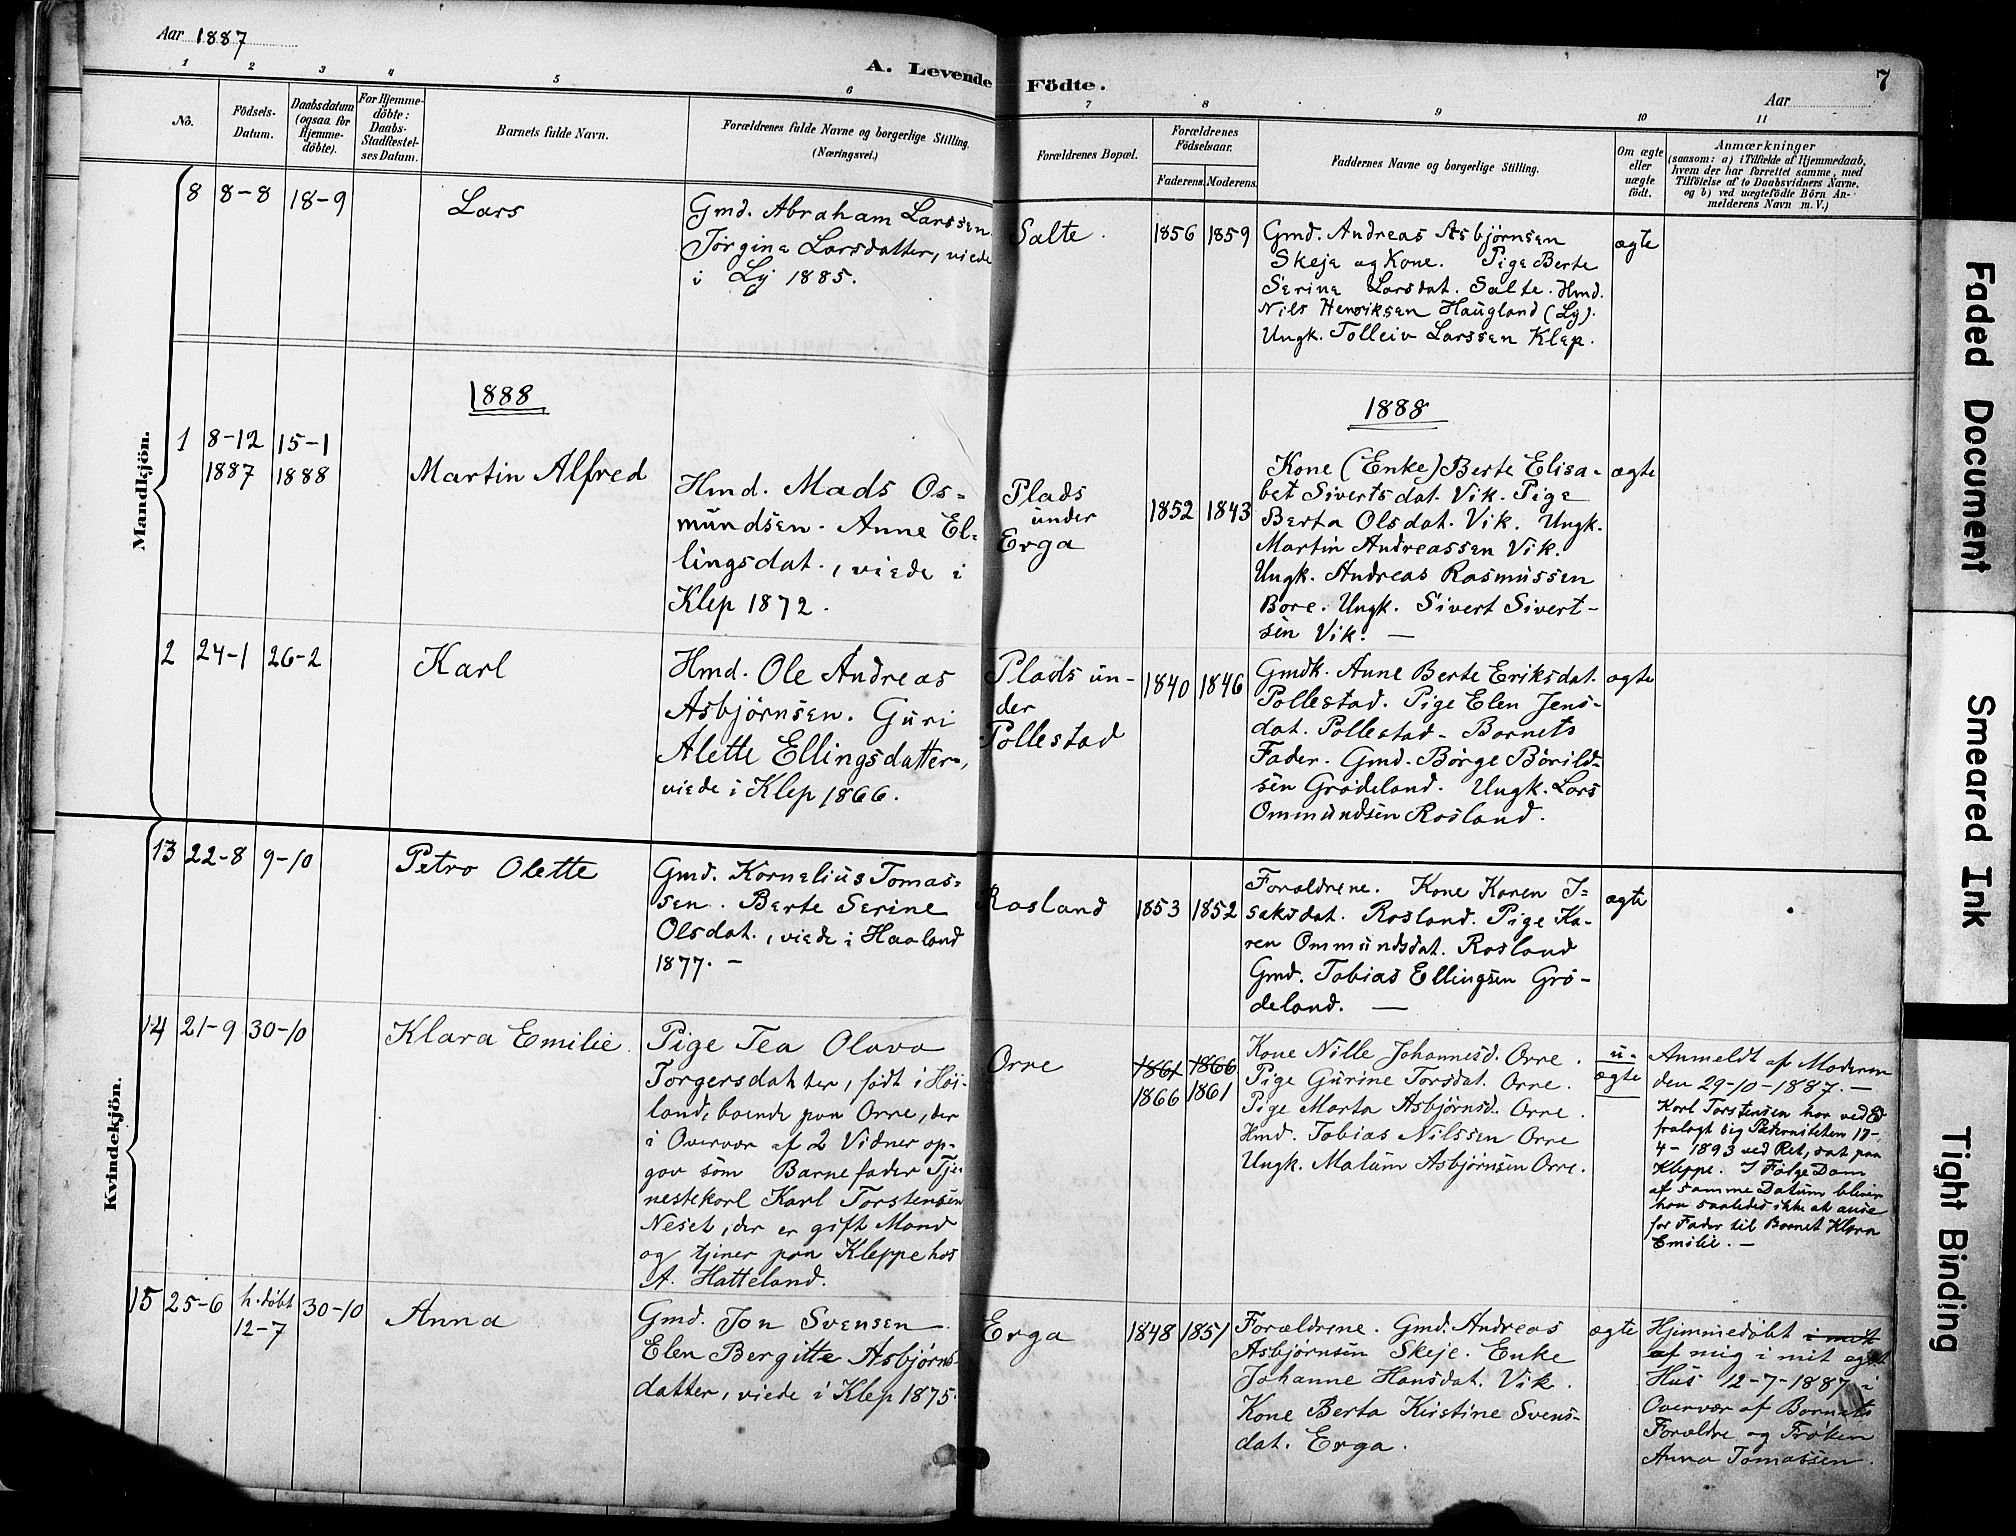 Aar 1887
A. Levende Födte.
7
Aar
1 2 3 4 5 6 7 8 9 10 11
No.
Födsels-
Datum.
Daabsdatum
(ogsaa for
Hjemme-
döbte).
For Hjemme-
döbte:
Daabs-
Stadfæstel-
ses Datum.
Barnets fulde Navn.
Forældrenes fulde Navne og borgerlige Stilling.
(Næringsvei.)
Forældrenes Bopæl.
Forældrenes
Födselsaar.
Faderens. Moderens.
Faddernes Navne og borgerlige Stilling.
Om ægte
eller
uægte
født.
Anmærkninger
(saasom: a) i Tilfælde af Hjemmedaab,
hvem der har forrettet samme, med
Tilföielse af to Daabsvidners Navne,
og b) ved uægtefödte Börn An-
melderens Navn m. V.)
Mandkjön.
8 8-8 18-9 Lars
Gmd. Abraham Larssen.
Jørgine Larsdatter, viede
i Ly 1885.
Salte.
1856 1859
Gmd. Andreas Asbjørnsen
Skeje og Kone. Pige Berte
Serine Larsdat. Salte. Hmd.
Nils Henriksen Haugland (Ly).
Ungk. Tolleiv Larssen Klep.
ægte
1888
1888
1 8-12 15-1
1887 1888
Martin Alfred
Hmd. Mads Os-
mundsen. Anne El-
lingsdat., viede i
Klep 1872.
Plads
under
Erga
1852 1843
Kone (Enke) Berte Elisa-
bet Sivertsdat. Vik. Pige
Berta Olsdat. Vik. Ungk.
Martin Andreassen Vik.
Ungk. Andreas Rasmussen
Bore. Ungk. Sivert Sivert-
sen Vik. —
ægte
2 24-1 26-2 Karl
Hmd. Ole Andreas
Asbjørnsen. Guri
Alette Ellingsdatter,
viede i Klep 1866.
Plads un-
der
Pollestad
1840 1846
Gmdk. Anne Berte Eriksdat.
Pollestad. Pige Elen Jens-
dat. Pollestad - Barnets
Fader. Gmd. Børge Børild-
sen Grødeland. Ungk. Lars
Ommundsen Rosland.
ægte
Kvindekjön.
13 22-8 9-10 Petra Olette
Gmd. Kornelius Tomas-
sen. Berte Serine
Olsdat., viede i Haaland
1877. —
Rosland
1853 1852
Forældrene. Kone Karen I-
saksdat. Rosland. Pige Ka-
ren Ommundsdat. Rosland
Gmd. Tobias Ellingsen Grø-
deland. —
ægte
14 21-9 30-10 Klara Emilie.
Pige Tea Olava
Torgersdatter, født i Høi-
land, boende paa Orre, der
i Overvær af 2 Vidner op-
gav som Barnefader Tje-
nestekarl Karl Torstensen
Neset, der er gift Mand
og tjener paa Kleppe hos
A. Hatteland.
Orre
1861 1866
1866 1861
Kone Nille Johannesd. Orre.
Pige Gurine Torsdat. Orre.
Pige Marta Asbjørnsd. Orre.
Hmd. Tobias Nilssen Orre
Ungk. Malum Asbjørnsen Orre.
u-
ægte
Anmeldt af Moderen
den 29-10-1887. —
Karl Torstensen har ved Ed
fralagt sig Paterniteten 17-
4-1893 ved Ret, sat paa
Kleppe. I Følge Dom
af samme Datum bliver
han saaledes ikke at anse
for Fader til Barnet Klara
Emilie. —
15 25-6 h.døbt 30-10
12-7
Anna
Gmd. Jon Svensen
Elen Bergitte Asbjørns-
datter, viede i Klep 1875.
Erga
1848 1851
Forældrene. Gmd. Andreas
Asbjørnsen Skeje. Enke
Johanne Hansdat. Vik.
Kone Berta Kirstine Svens-
dat. Erga.
ægte
Hjemmedøbt i mit
af mig i mit eget
Hus 12-7-1887 i
Overvær af Barnets
Forældre og Frøken
Anna Tomassen.
Faded Document
Smeared Ink
Tight Binding